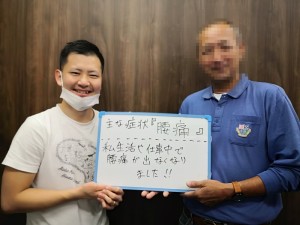 主な症状『腰痛』
私生活や仕事中で
腰痛が出なくなり
ました!!